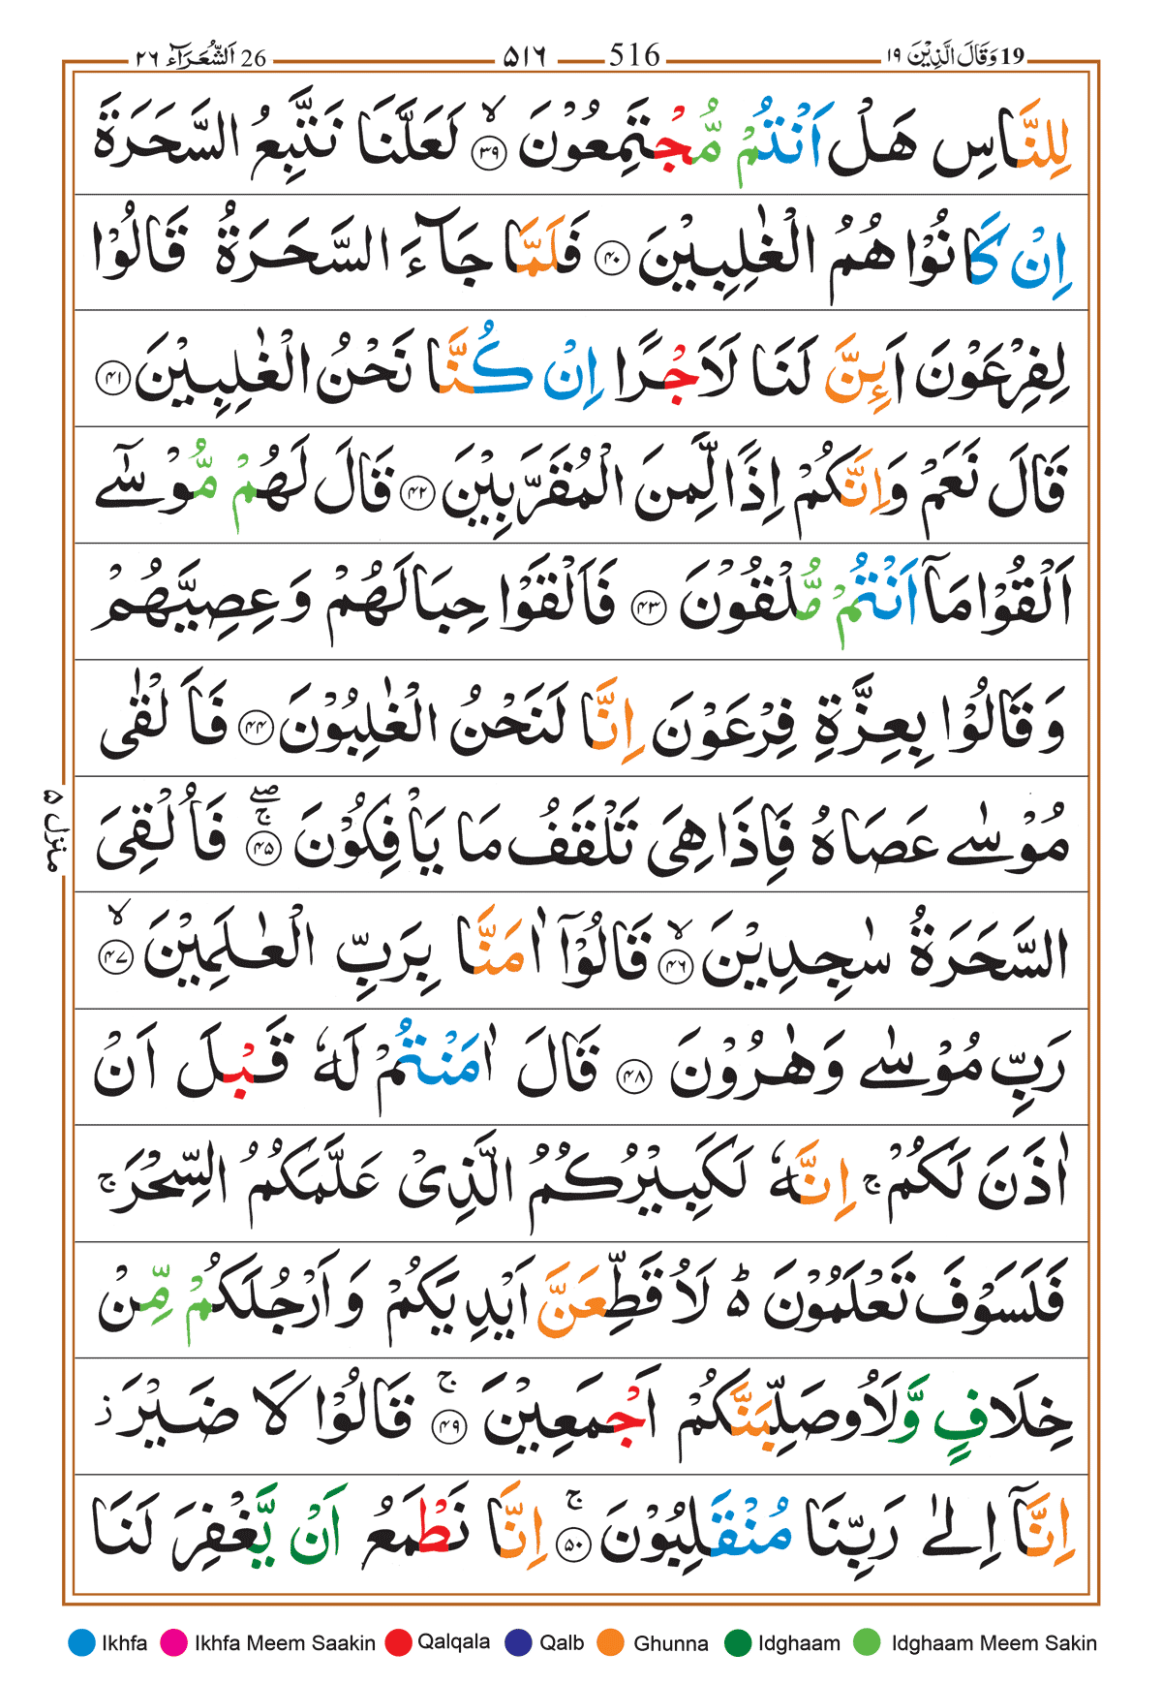 19 وَقَالَ الَّذِيْنَ ١٩ 516 ۵۱۶ 26 اَلشُّعَرَآء ۲۶
لِلنَّاسِ هَلْ اَنْتُمْ مُّجْتَمِعُوْنَ ۙ﴿۳۹﴾ لَعَلَّنَا نَتَّبِعُ السَّحَرَةَ
اِنْ كَانُوْا هُمُ الْغٰلِبِيْنَ ﴿۴۰﴾ فَلَمَّا جَآءَ السَّحَرَةُ قَالُوْا
لِفِرْعَوْنَ اَئِنَّ لَنَا لَاَجْرًا اِنْ كُنَّا نَحْنُ الْغٰلِبِيْنَ ﴿۴۱﴾
قَالَ نَعَمْ وَاِنَّكُمْ اِذًا لَّمِنَ الْمُقَرَّبِيْنَ ﴿۴۲﴾ قَالَ لَهُمْ مُّوْسٰٓى
اَلْقُوْا مَاۤ اَنْتُمْ مُّلْقُوْنَ ﴿۴۳﴾ فَاَلْقَوْا حِبَالَهُمْ وَعِصِيَّهُمْ
وَقَالُوْا بِعِزَّةِ فِرْعَوْنَ اِنَّا لَنَحْنُ الْغٰلِبُوْنَ ﴿۴۴﴾ فَاَلْقٰى
مُوْسٰى عَصَاهُ فَاِذَا هِىَ تَلْقَفُ مَا يَاْفِكُوْنَ ۚۖ﴿۴۵﴾ فَاُلْقِىَ
السَّحَرَةُ سٰجِدِيْنَ ۙ﴿۴۶﴾ قَالُوْۤا اٰمَنَّا بِرَبِّ الْعٰلَمِيْنَ ۙ﴿۴۷﴾
رَبِّ مُوْسٰى وَهٰرُوْنَ ﴿۴۸﴾ قَالَ اٰمَنْتُمْ لَهٗ قَبْلَ اَنْ
اٰذَنَ لَكُمْ ۚ اِنَّهٗ لَكَبِيْرُكُمُ الَّذِىْ عَلَّمَكُمُ السِّحْرَ ۚ
فَلَسَوْفَ تَعْلَمُوْنَ ؕ لَاُقَطِّعَنَّ اَيْدِيَكُمْ وَاَرْجُلَكُمْ مِّنْ
خِلَافٍ وَّلَاُوصَلِّبَنَّكُمْ اَجْمَعِيْنَ ۚ﴿۴۹﴾ قَالُوْا لَا ضَيْرَ ز
اِنَّاۤ اِلٰى رَبِّنَا مُنْقَلِبُوْنَ ۚ﴿۵۰﴾ اِنَّا نَطْمَعُ اَنْ يَّغْفِرَ لَنَا
منزل ۵
Ikhfa Ikhfa Meem Saakin Qalqala Qalb Ghunna Idghaam Idghaam Meem Sakin